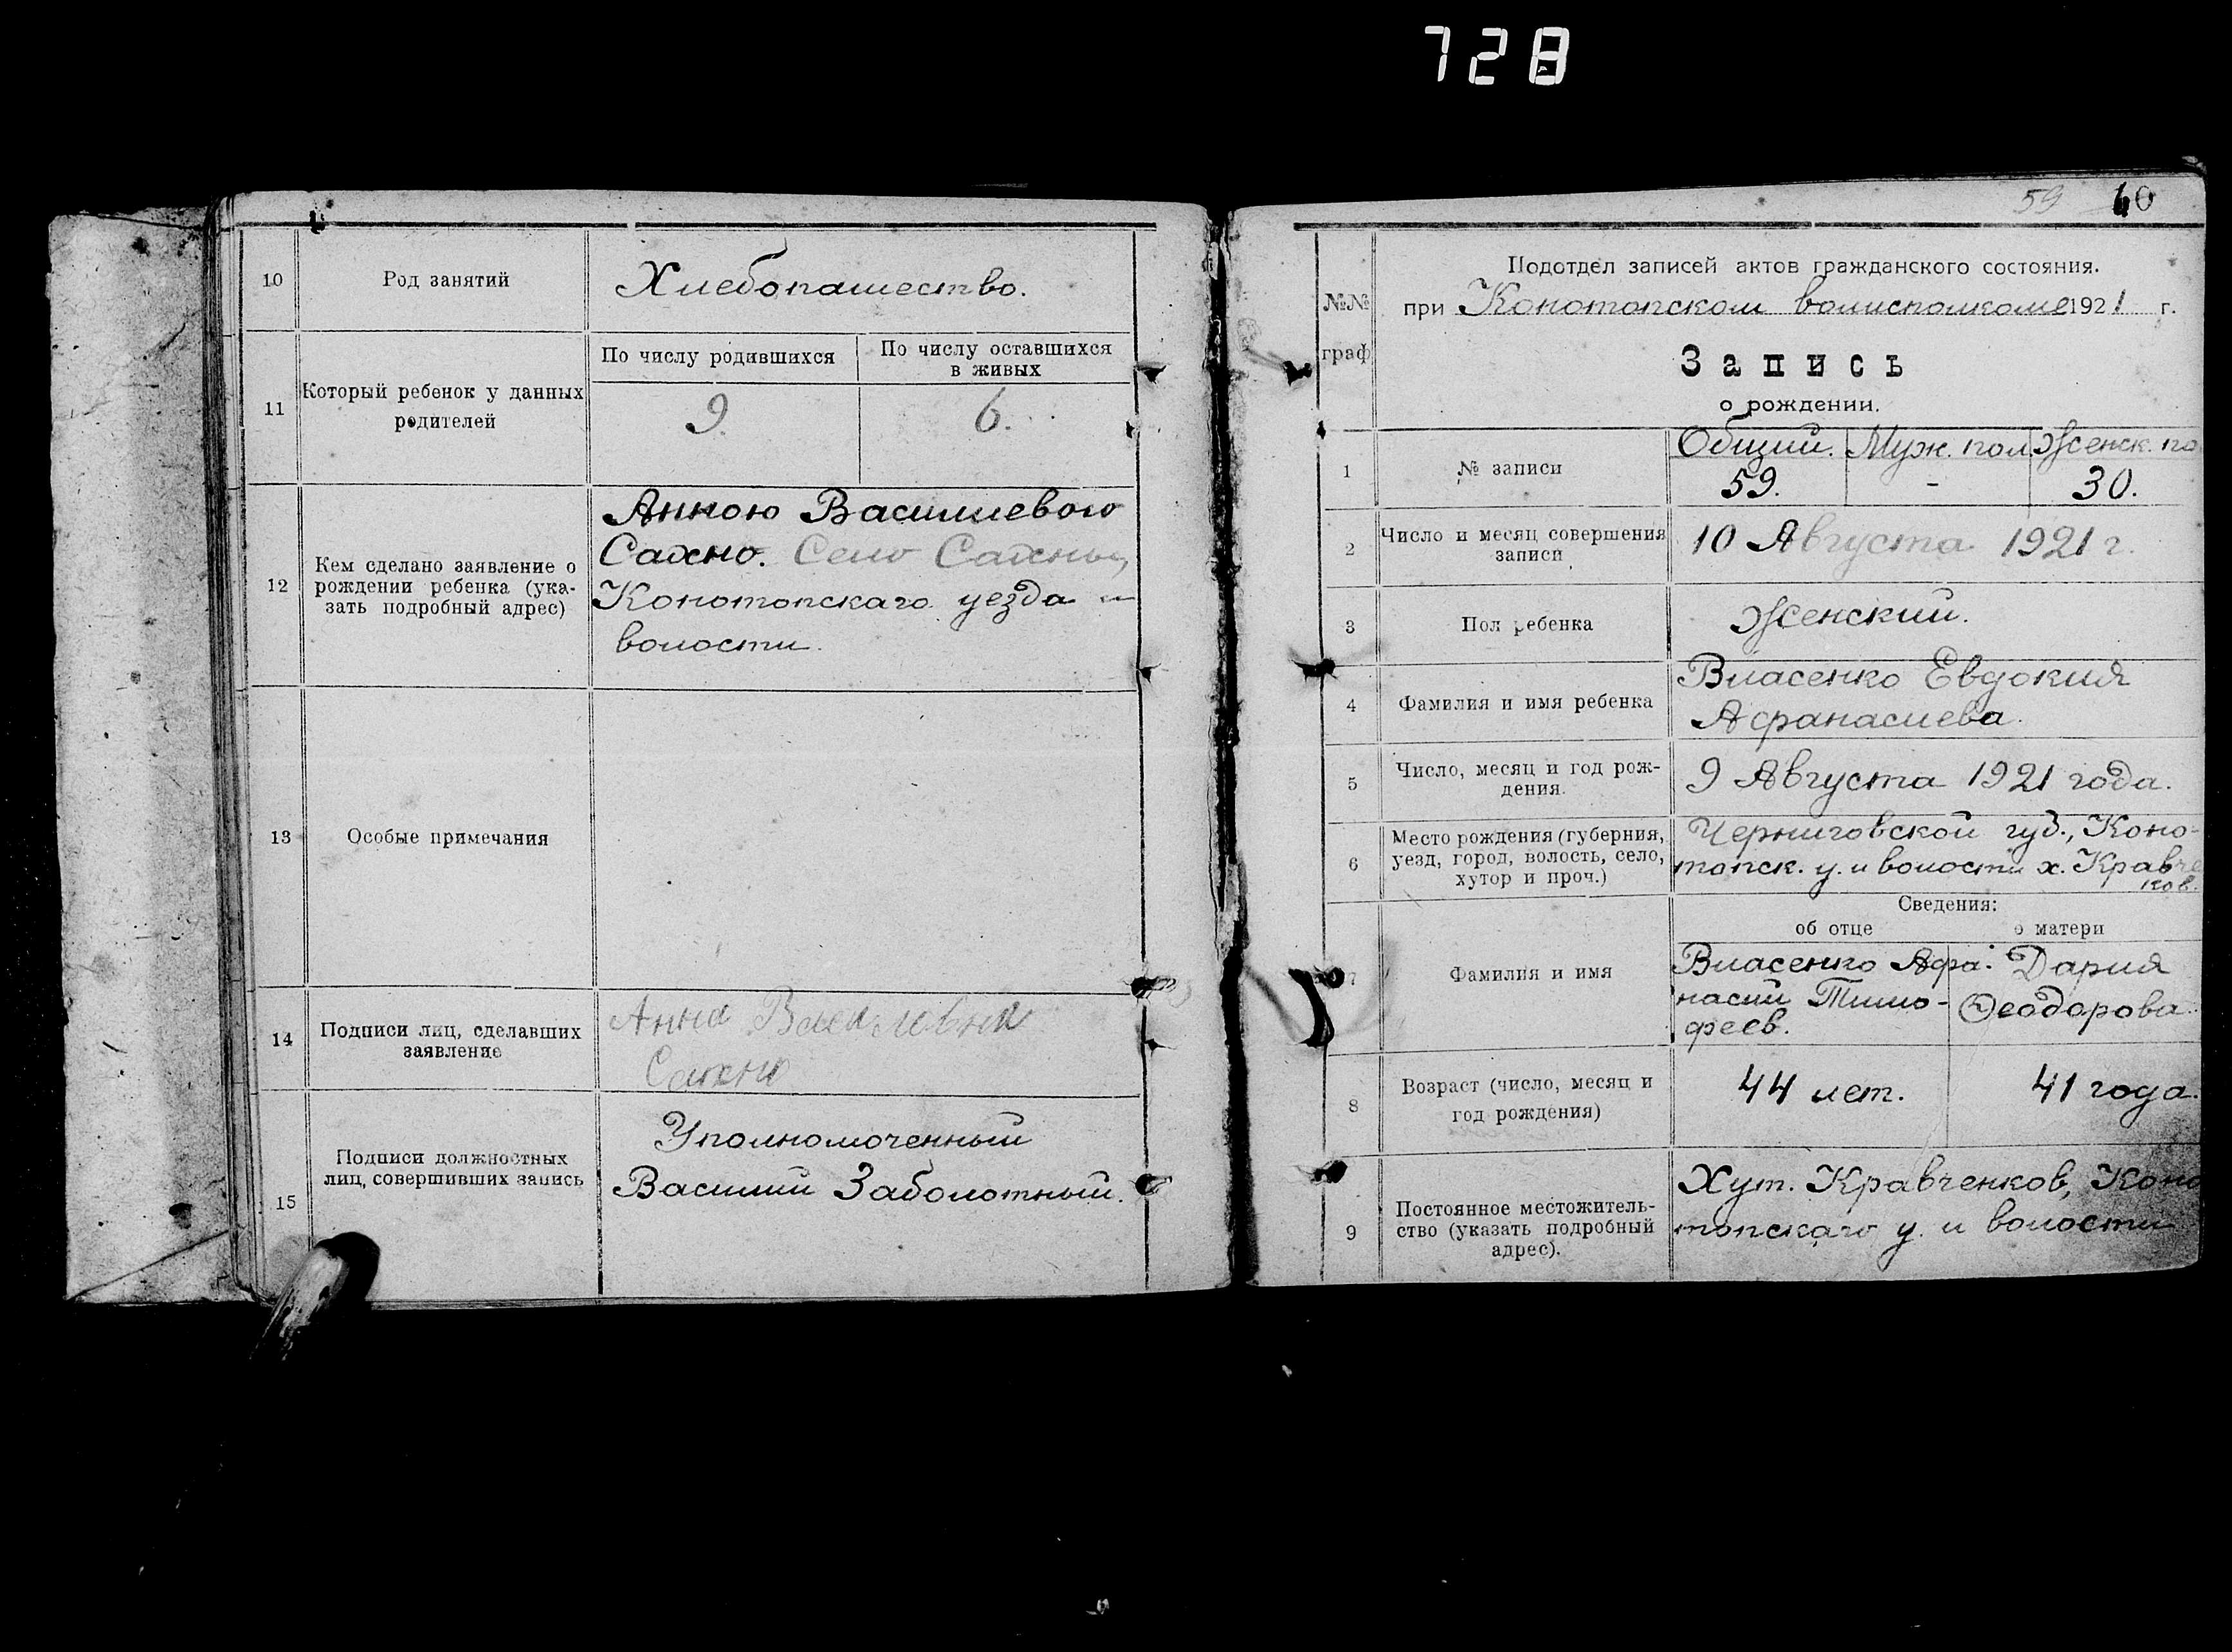 728
10
Род занятий
Хлебопашество.
11
Который ребенок у данных
родителей
По числу родившихся
По числу оставшихся
в живых
9
6.
12
Кем сделано заявление о
рождении ребенка (ука-
зать подробный адрес)
Анною Василиевою
Сахно. Село Сахны,
Конотопскаго уезда и
волости.
13
Особые примечания
14
Подписи лиц, сделавших
заявление
Анна
Сахно
15
Подписи должностных
лиц, совершивших запись
Уполномоченный
Василий Заболотный.
59 60
№№
граф
Подотдел записей актов гражданского состояния.
при Конотопском волисполкоме 1921 г.
Запись
о рождении.
1
№ записи
Общий. Муж. пол. Женск. по
59. - 30.
2
Число и месяц совершения
записи
10 Августа 1921 г.
3
Пол ребенка
Женский.
4
Фамилия и имя ребенка
Власенко Евдокия
Афанасиева.
5
Число, месяц и год рож-
дения.
9 Августа 1921 года.
6
Место рождения (губерния,
уезд, город, волость, село,
хутор и проч.)
Черниговской губ., Коно-
топск. у. и волости х. Кравче
ков.
Сведения:
об отце
о матери
7
Фамилия и имя
Власенко Афа-
насий Тимо-
феев.
Дария
Феодорова.
8
Возраст (число, месяц и
год рождения)
44 лет.
41 года.
9
Постоянное местожитель-
ство (указать подробный
адрес).
Хут. Кравченков, Коно
топскаго у. и волости